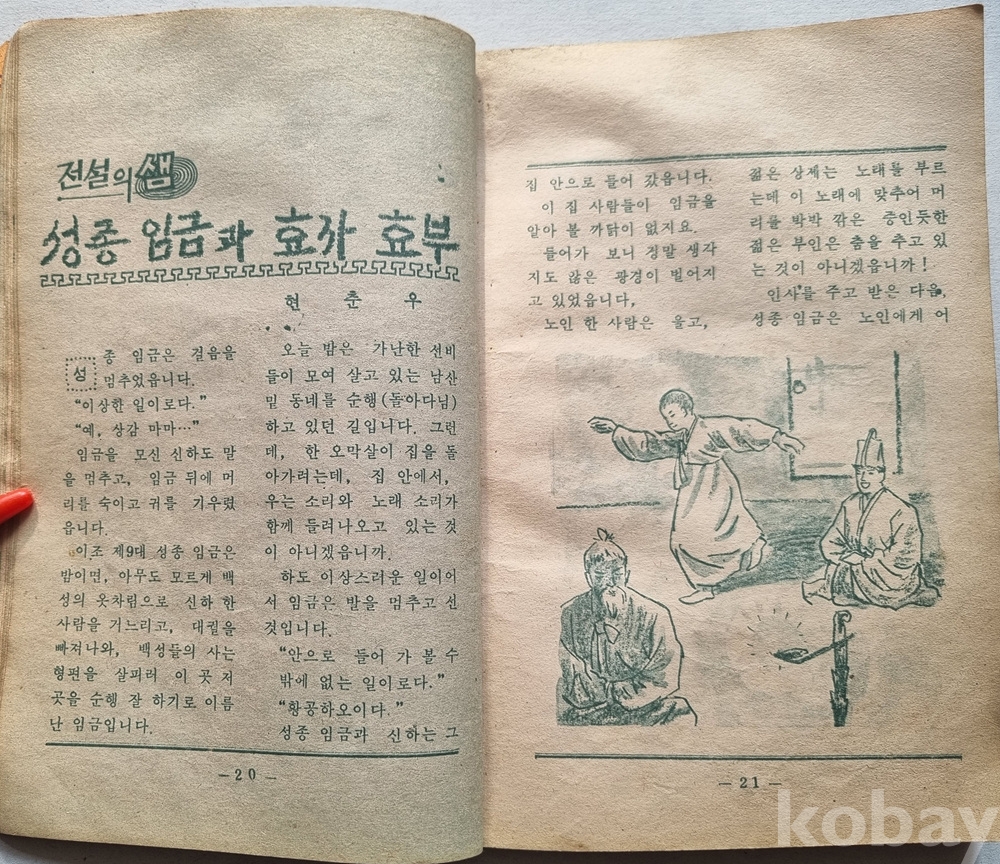 전설의 샘
성종 임금과 효자 효부
현 춘 우
성종 임금은 걸음을
멈추었읍니다.
“이상한 일이로다.”
“예, 상감 마마…”
임금을 모신 신하도 말
을 멈추고, 임금 뒤에 머
리를 숙이고 귀를 기우렸
읍니다.
이조 제9대 성종 임금은
밤이면, 아무도 모르게 백
성의 옷차림으로 신하 한
사람을 거느리고, 대궐을
빠져나와, 백성들의 사는
형편을 살피러 이 곳 저
곳을 순행 잘 하기로 이름
난 임금입니다.
오늘 밤은 가난한 선비
들이 모여 살고 있는 남산
밑 동네를 순행(돌아다님)
하고 있던 길입니다. 그런
데, 한 오막살이 집을 돌
아가려는데, 집 안에서,
우는 소리와 노래 소리가
함께 들려나오고 있는 것
이 아니겠읍니까.
하도 이상스러운 일이어
서 임금은 발을 멈추고 선
것입니다.
“안으로 들어 가 볼 수
밖에 없는 일이로다.”
“황공하오이다.”
성종 임금과 신하는 그
—20—
집 안으로 들어 갔읍니다.
이 집 사람들이 임금을
알아 볼 까닭이 없지요.
들어가 보니 정말 생각
지도 않은 광경이 벌어지
고 있었읍니다,
노인 한 사람은 울고,
젊은 상제는 노래를 부르
는데 이 노래에 맞추어 머
리를 박박 깎은 중인듯한
젊은 부인은 춤을 추고 있
는 것이 아니겠읍니까!
인사를 주고 받은 다음,
성종 임금은 노인에게 어
—21—
kobay